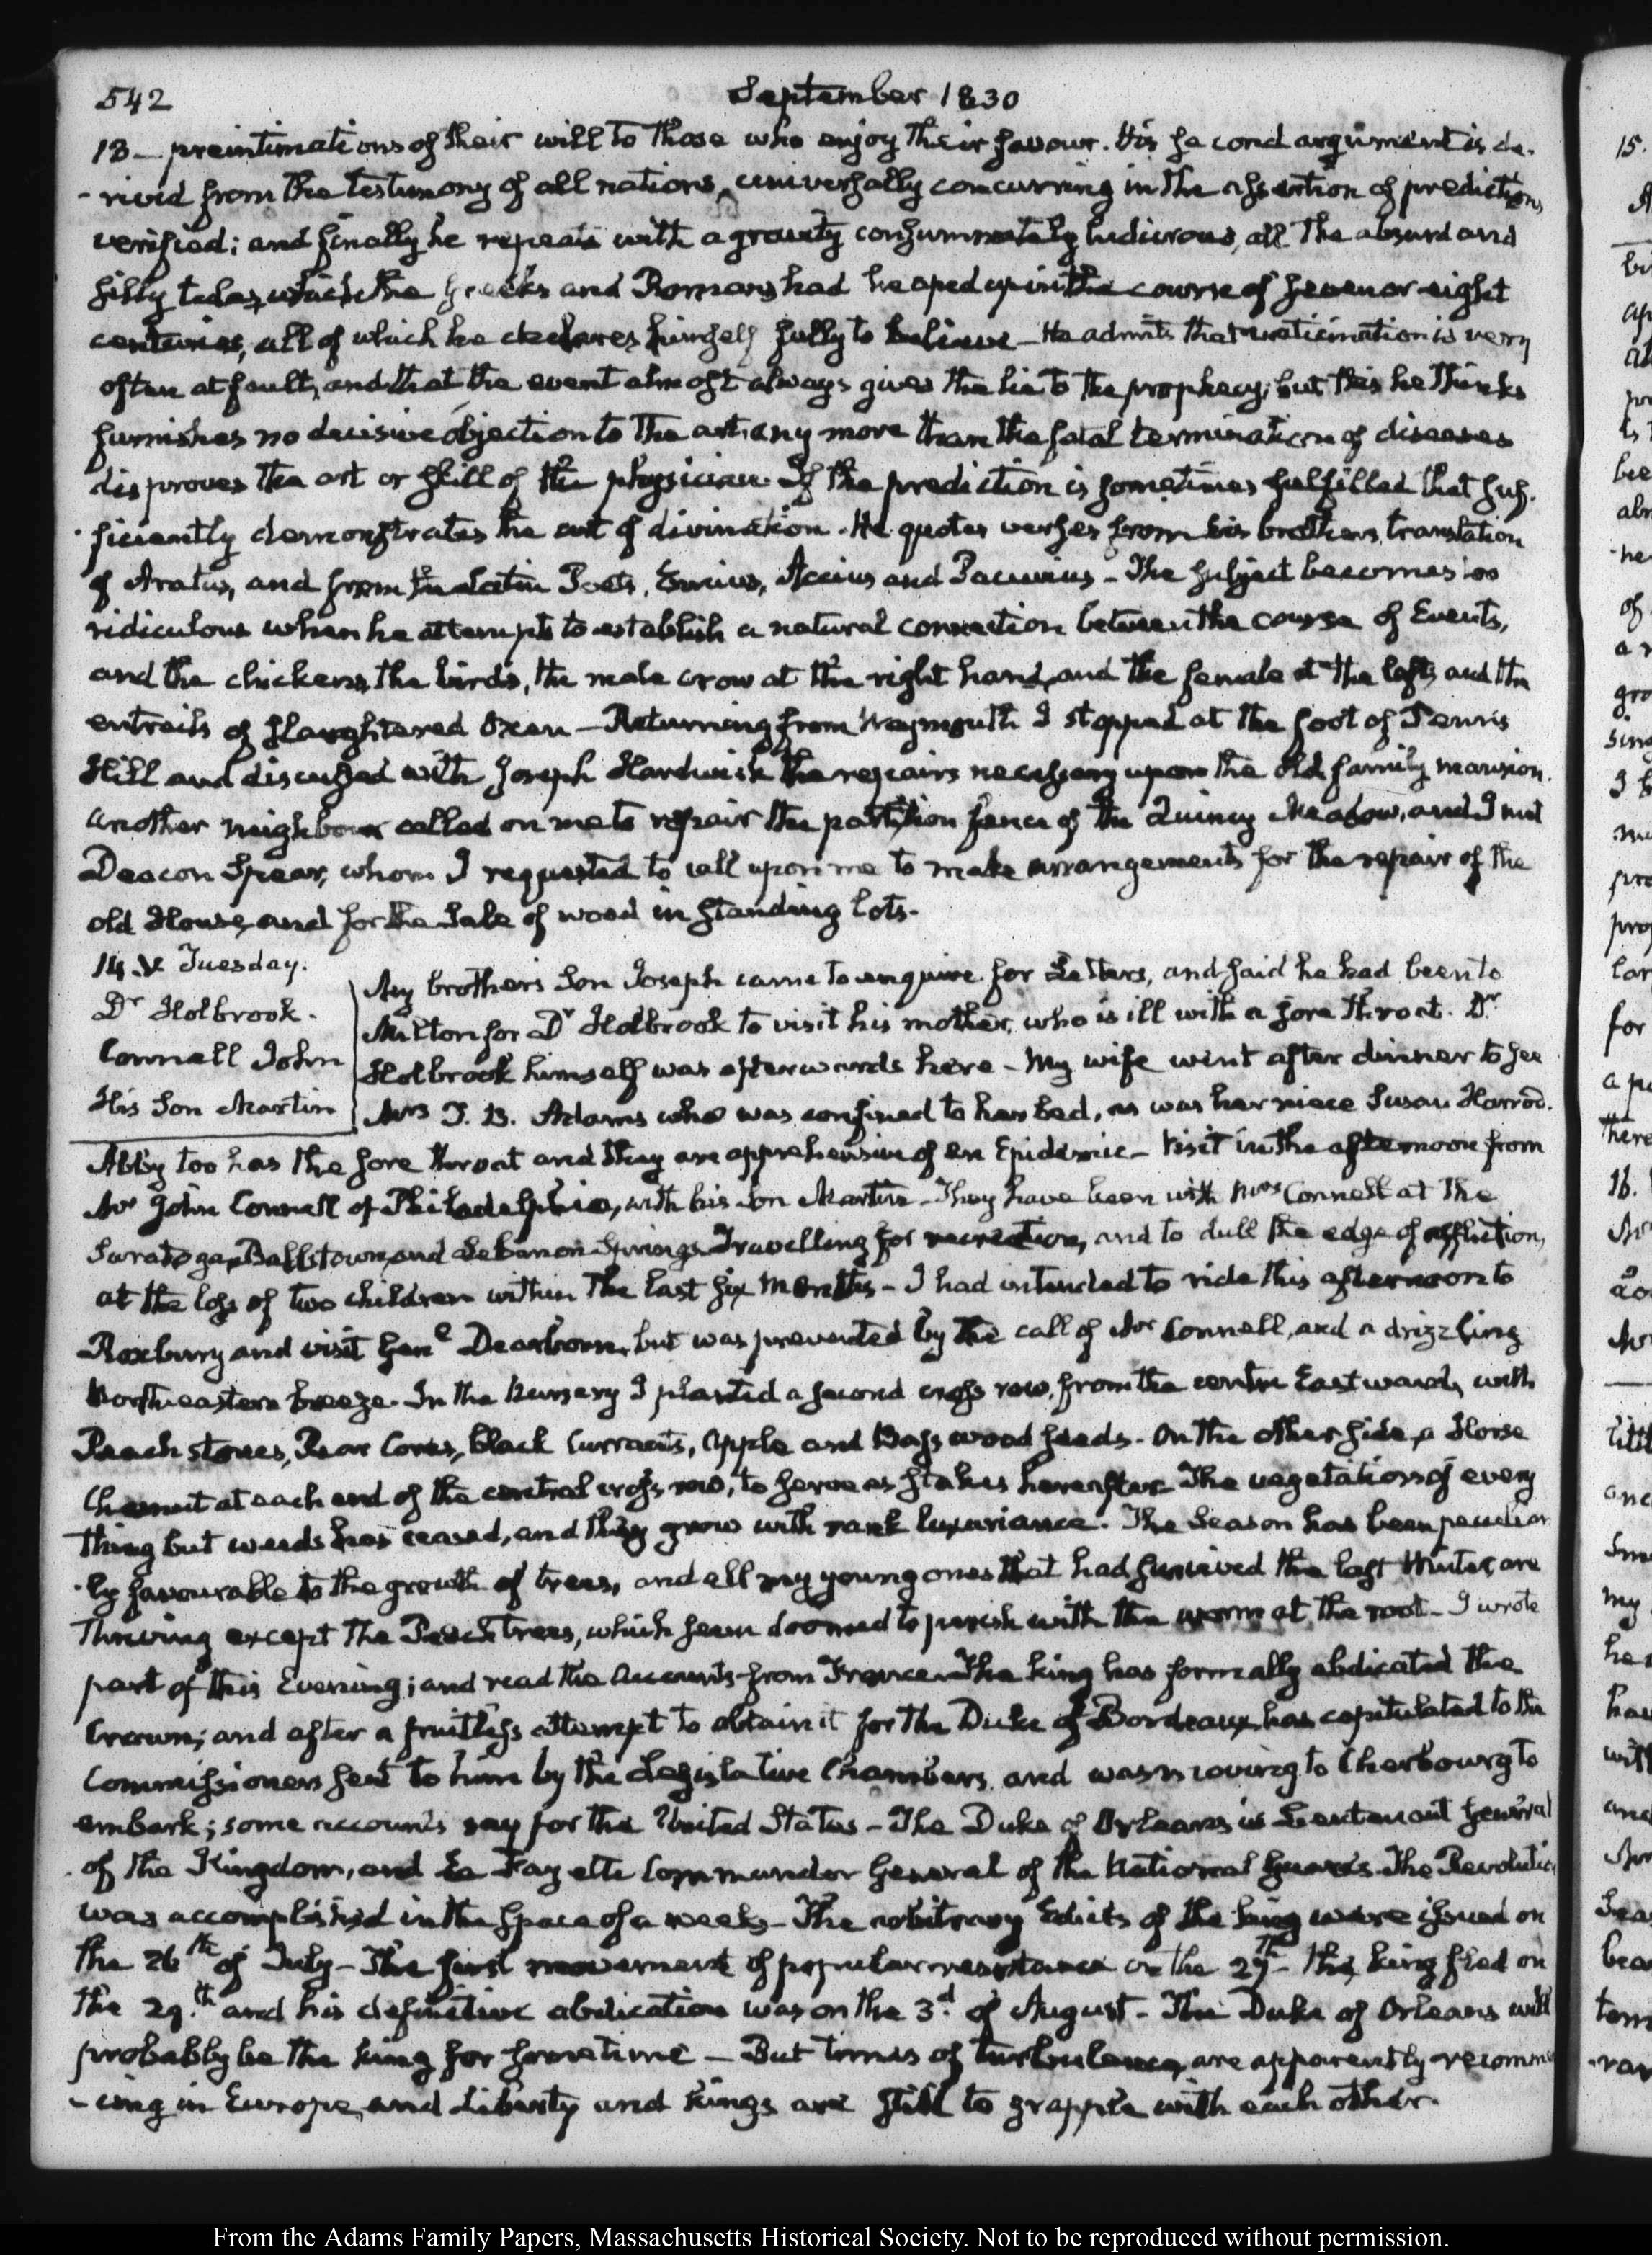 542
September 1830
13 — preintimations of their will to those who enjoy their favour. His second argument is de-
-rived from the testimony of all nations, universally concurring in the assertion of predictions
verified: and finally he repeats with a gravity consummately ludicrous, all the absurd and
silly tales, which the Greeks and Romans had heaped up in the course of seven or eight
centuries, all of which he declares himself fully to believe — He admits that vaticination is very
often at fault, and that the event almost always gives the lie to the prophecy; but this he thinks
furnishes no decisive objection to the art, any more than the fatal termination of diseases
disproves the art or skill of the physician. If the prediction is sometimes fulfilled that suf-
-ficiently demonstrates the art of divination. He quotes verses from his brothers translation
of Aratus, and from the Latin Poets, Ennius, Accius and Pacuvius — The subject becomes too
ridiculous when he attempts to establish a natural connection between the course of Events,
and the chickens, the birds, the male crow at the right hand, and the female at the left, and the
entrails of slaughtered Oxen — Returning from Weymouth I stopped at the foot of Penn's
Hill and discussed with Joseph Hardwick the repairs necessary upon the old family mansion.
another neighbour called on me to repair the partition fence of the Quincy Meadow, and I met
Deacon Spear, whom I requested to call upon me to make arrangements for the repair of the
old House, and for the Sale of wood in standing lots.
14. V. Tuesday.
Dr Holbrook.
Connell John
His Son Martin
My brother's Son Joseph came to enquire for Letters, and said he had been to
Milton for Dr Holbrook to visit his mother, who is ill with a sore throat. Dr
Holbrook himself was afterwards here — My wife went after dinner to see
Mrs T. B. Adams who was confined to her bed, as was her niece Susan Harrod.
Abby too has the sore throat and they are apprehensive of an Epidemic — Visit in the afternoon from
Mr John Connell of Philadelphia, with his Son Martin — They have been with Mrs Connell at the
Saratoga, Ballstown, and Lebanon Springs Travelling for recreation, and to dull the edge of affliction,
at the loss of two children within the last six Months — I had intended to ride this afternoon to
Roxbury and visit Genl Dearborn, but was prevented by the call of Mr Connell, and a drizzling
Northeastern breeze. In the Nursery I planted a second cross row, from the centre Eastward, with
Peach stones, Pear Cores, black Currants, Apple and Bass wood seeds. On the other side, a Horse
Chesnut at each end of the central cross row, to serve as stakes hereafter. The vegetation of every
thing but weeds has ceased, and they grow with rank luxuriance. The Season has been peculiar
-ly favourable to the growth of trees, and all my young ones that had survived the last Winter, are
thriving except the Peach trees, which seem doomed to perish with the worm at the root — I wrote
part of this Evening; and read the accounts from France. The king has formally abdicated the
Crown; and after a fruitless attempt to obtain it for the Duke of Bordeaux, has capitulated to the
Commissioners sent to him by the Legislative Chambers, and was moving to Cherbourg to
embark; some accounts say for the United States — The Duke of Orleans is Lieutenant General
of the Kingdom, and La Fayette Commander General of the National Guards. The Revolution
was accomplished in the space of a week — The arbitrary Edicts of the king were issued on
the 26th of July — The first movement of popular resistance on the 27th the king fled on
the 29.th and his definitive abdication was on the 3.d of August — The Duke of Orleans will
probably be the king for sometime — But times of turbulence, are apparently recommen
-cing in Europe, and Liberty and kings are still to grapple with each other.
From the Adams Family Papers, Massachusetts Historical Society. Not to be reproduced without permission.